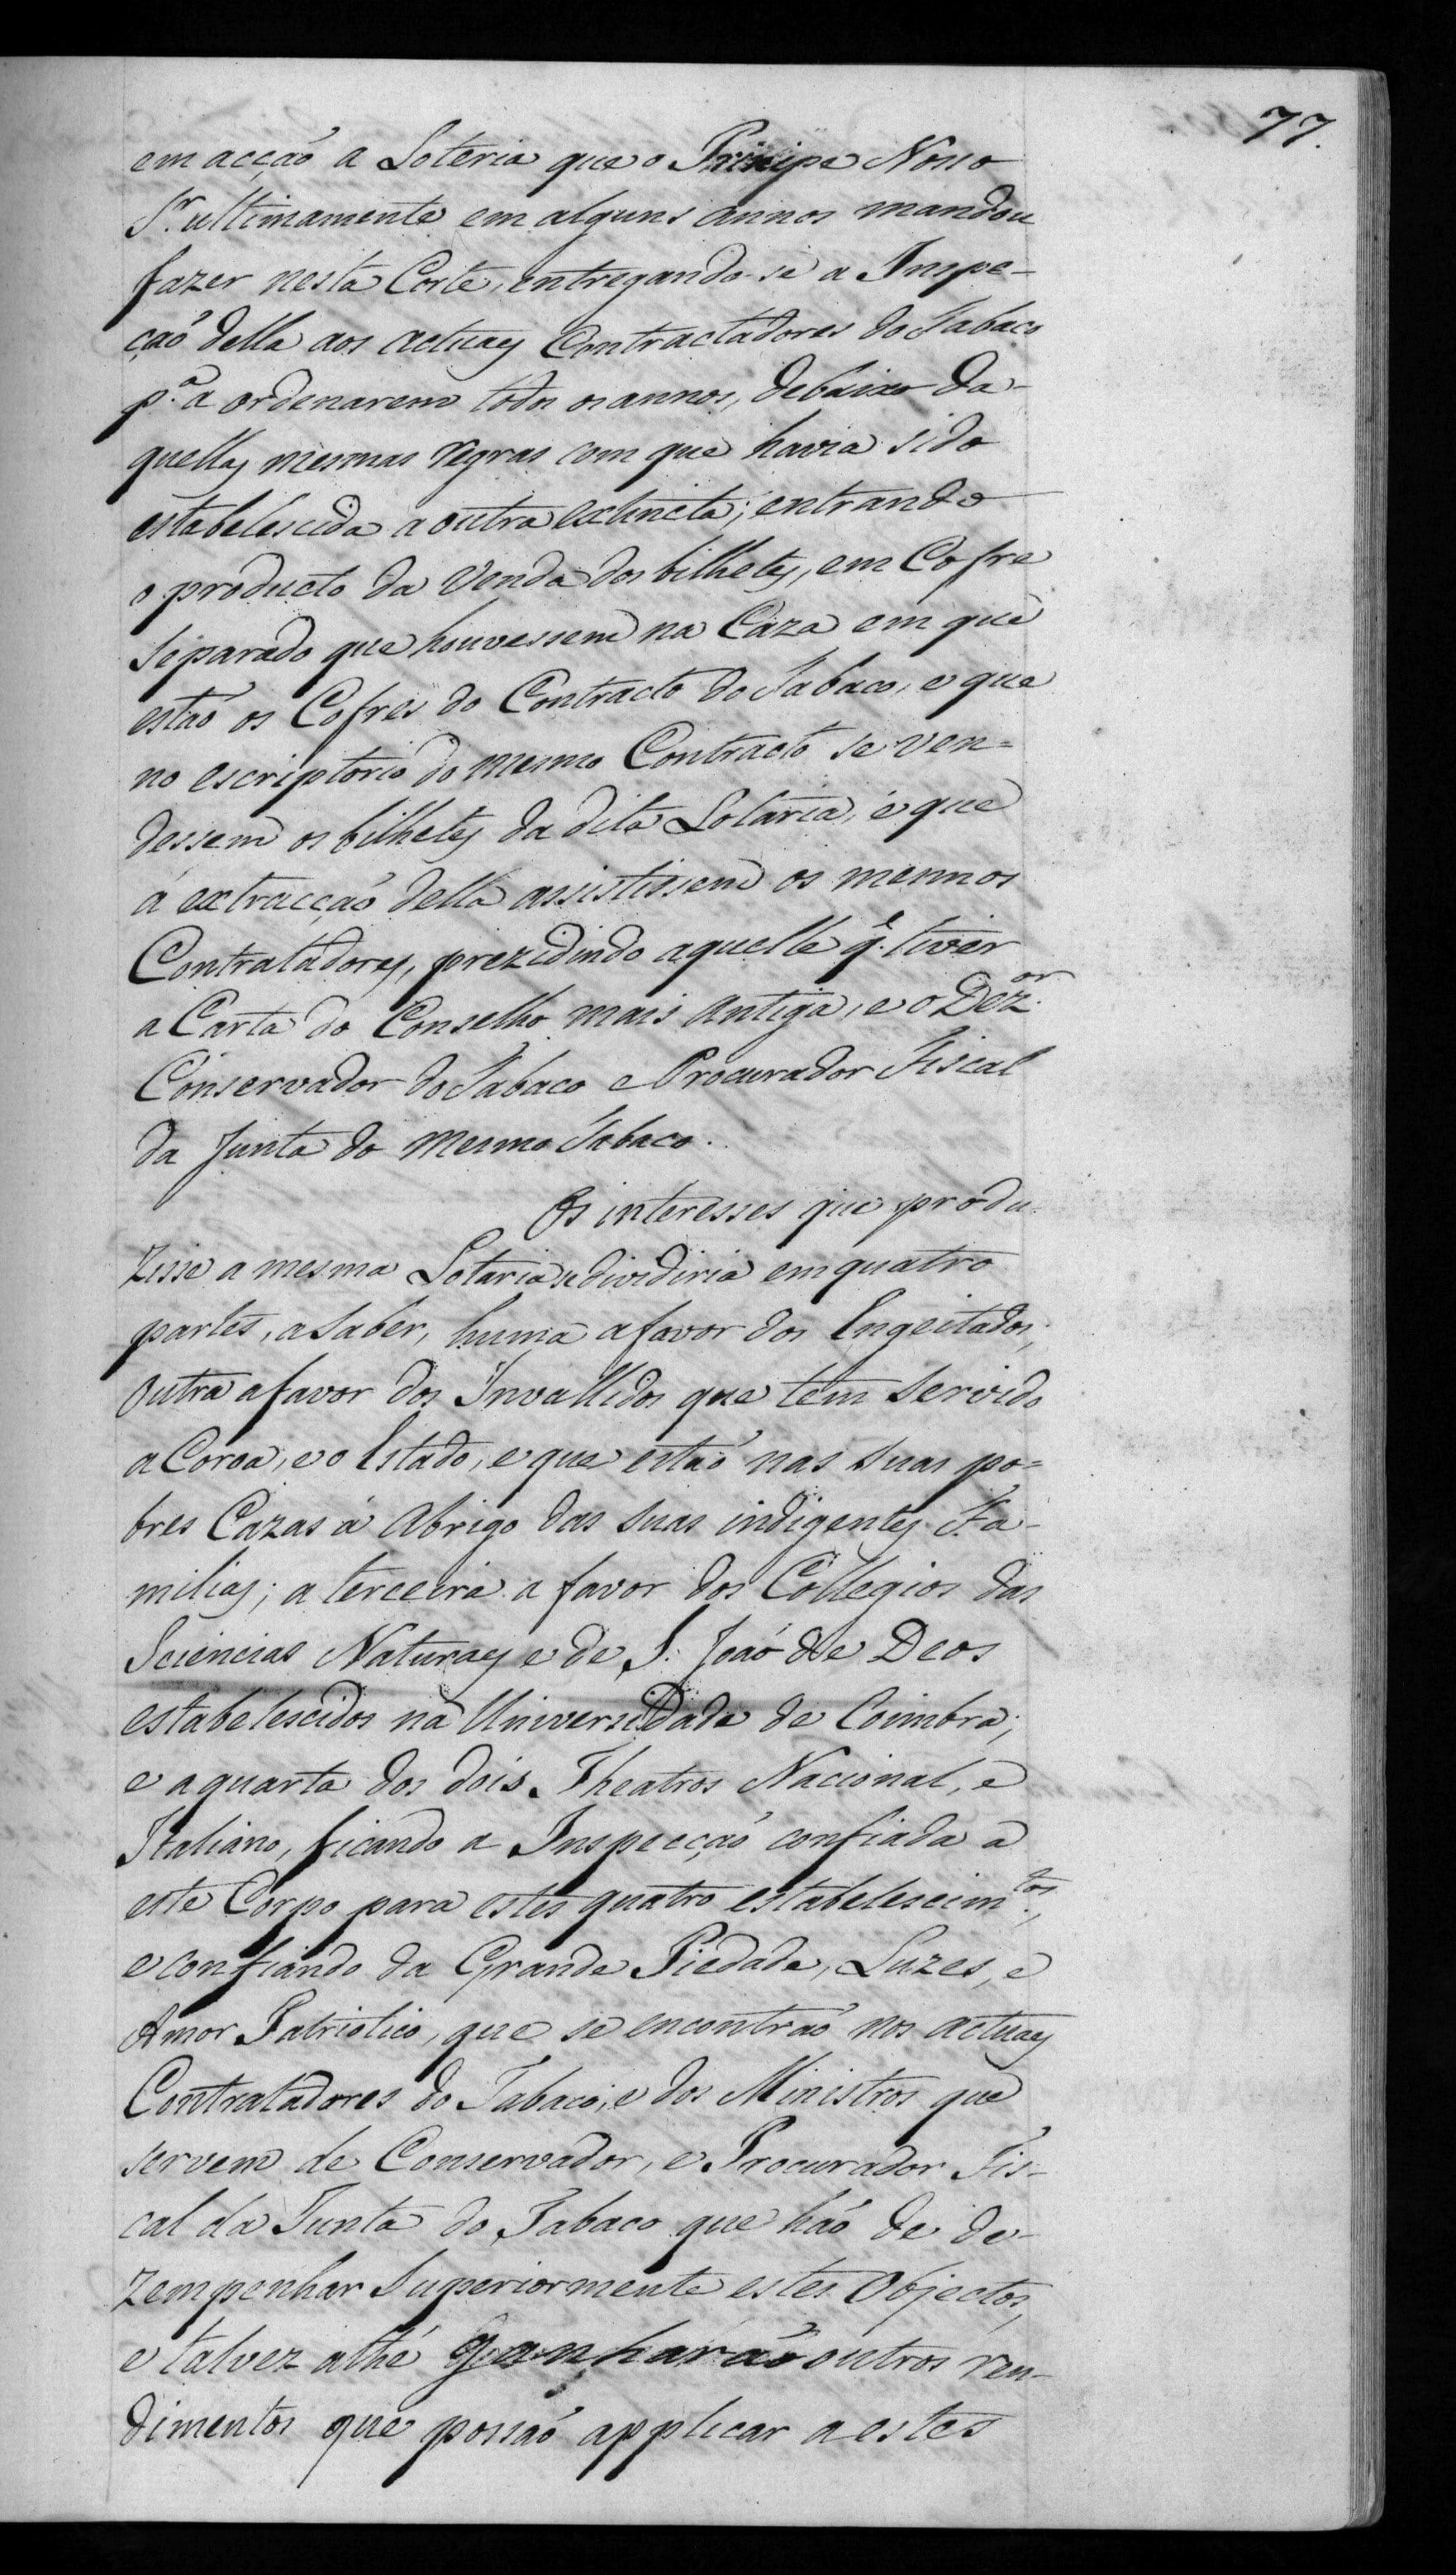 77.
em acção a Loteria que o Principe Nosso
S.r ultimamente em alguns annos mandou
fazer nesta Corte, entregando-se a Inspe-
ção della aos actuaes Contractadores do Tabaco
p.a a ordenarem todos os annos, debaixo da-
quellas mesmas regras com que havia sido
estabelescida a outra extincta; entrando
o producto da venda dos bilhetes, em Cofre
separado que houvessem na Caza em que
estaõ os Cofres do Contracto do Tabaco, e que
no escriptorio do mesmo Contracto se ven=
dessem os bilhetes da dita Lotaria, e que
á extracção della assistissem os mesmos
Contratadores, prezidindo aquelle q.e tiver
a Carta do Conselho mais antiga, e o Dez.or
Conservador do Tabaco e Procurador Fiscal
da Junta do mesmo Tabaco.
Os interesses que produ-
zisse a mesma Lotaria se dividiria em quatro
partes, a saber, huma a favor dos Engeitados,
outra a favor dos Invallidos que tem servido
a Coroa, e o Estado, e que estaõ nas suas po=
bres Cazas a abrigo das suas indigentes Fa-
milias; a terceira a favor dos Collegios das
Sciencias Naturaes e de S. Joaõ de Deos
estabelescidos na Universidade de Coimbra;
e a quarta dos dois Theatros Nacional, e
Italiano, ficando a Inspecçaõ confiada a
este Corpo para estes quatro estabelescim.tos,
e confiando da Grande Piedade, Luzes, e
Amor Patriotico, que se encontraõ nos actuaes
Contratadores do Tabaco, e dos Ministros que
servem de Conservador, e Procurador Fis-
cal da Junta do Tabaco que haõ de de-
zempenhar superiormente estes objectos,
e talvez athé ganharaõ outros ren-
dimentos que possaõ applicar a estes